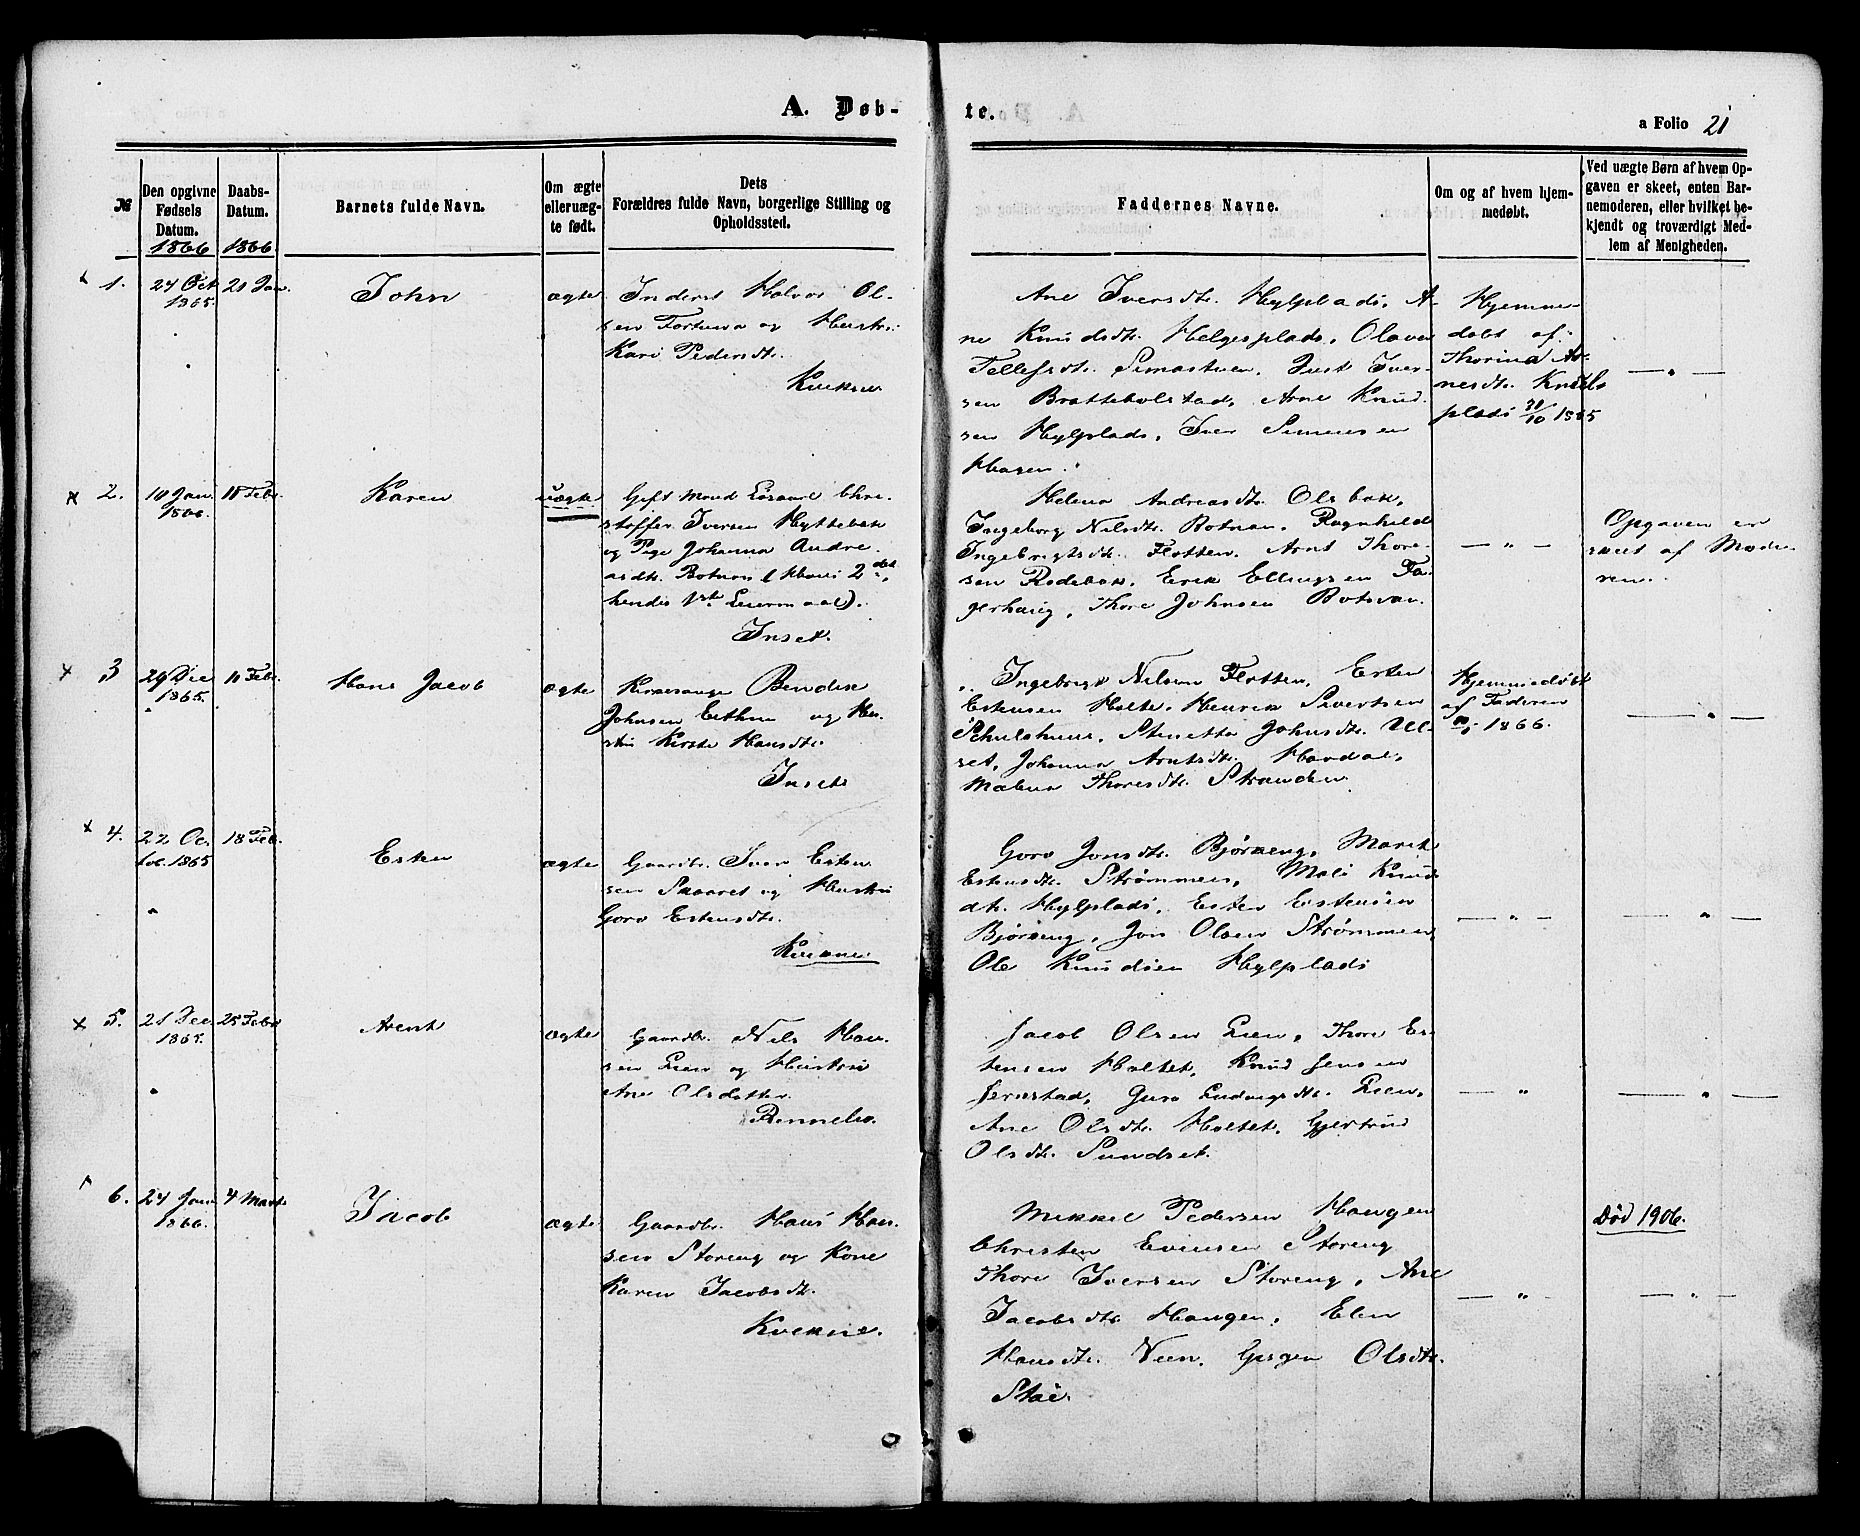 A. Døb-
te.
a Folio 21
№
Den opgivne
Fødsels
Datum.
1866
Daabs-
Datum.
1866.
Barnets fulde Navn.
Om ægte
elleruæg-
te født.
Dets
Forældres fulde Navn, borgerlige Stilling og
Opholdssted.
Faddernes Navne.
Om og af hvem hjem-
medøbt.
Ved uægte Børn af hvem Op-
gaven er skeet, enten Bar-
nemoderen, eller hvilket be-
kjendt og troværdigt Med-
lem af Menigheden.
1.
24 Oct
1865.
21 Jan.
John
ægte
Inderst Halvor Ol-
sen Fortuna og Hustru
Kari Pedersdt.
Kvikne
Ane Iversdt. Hylplads, A-
ne Knudsdt. Helgesplads, Olava
Tellefsdt. Simastuen, Just Iver-
sen Bratteholstad, Arne Knud-
sen Hylplads, Iver Simensen
Hagen.
Hjemme-
døbt af
Thorina Ar-
nesdt. Knuds
plads 31/10 1865
— " —
2.
10 Jan.
1866.
18 Febr.
Karen
uægte
Gift Mand Løsaarl Chri-
stoffer Iversen Hyttebak
og Pige Johanna Andre-
asdt. Botnan (Hans 2det,
hendes 1ste Leiermaal).
Inset.
Helena Andreasdt. Olsbak,
Ingeborg Nilsdt. Botnan, Ragnhild
Ingebrigtsdt. Flotten, Arnt Thore-
sen Rødebak, Erik Ellingsen Fa-
gerhaug, Thore Johnsen Botnan.
— " —
Opgaven er
skeet af Mode-
ren.
3
29 Dec
1865.
11 Febr.
Hans Jacob
ægte
Kirkesanger Bendix
Johnsen Eithun og Hu-
stru Kirste Hansdt.
Inset
Ingebrigt Nilsen Flotten, Esten
Estensen Holte, Henrik Sivertsen
Schulshuus, Stenetta Johnsdt. Ul-
set, Johanna Arntsdt. Hardal,
Malena Thoresdt. Stranden
Hjemmedøbt
af Faderen
1866.
— " —
4.
22 Oc-
tob. 1865
18 Feb.
Esten
ægte
Gaardbr. Iver Esten
sen Skaaret og Hustru
Goro Estensdt.
Kvikne
Goro Jonsdt. Bjørkeng, Marit
Estensdt. Strømmen, Mali Knuds
dt. Hylplads, Esten Estensen
Bjørkeng, Jon Olsen Strømmen,
Ole Knudsen Hylplads
— " —
— " —
5.
21 Dec.
1865.
25 Febr
Arent
ægte
Gaardbr. Nils Han-
sen Lien og Hustru
Ane Olsdatter.
Rennebo.
Jacob Olsen Lien, Thore Es-
tensen Holtet, Knud Jensen
Jernstad, Guro Ludvigsdt. Lien,
Ane Olsdt. Holtet, Gjertrud
Olsdt. Sundset.
— " —
— " —
6.
24 Jan.
1866.
4 Marts
Jacob
ægte
Gaardbr. Hans Han-
sen Storeng og Kone
Karen Jacobsdt.
Kvikne.
Mikkel Pedersen Haugen
Christen Evensen Storeng
Thore Iversen Storeng, Ane
Jacobsdt. Haugen, Elen
Hansdt. Veen, Olsdt.
Stai.
— " —
Død 1906.
— " —